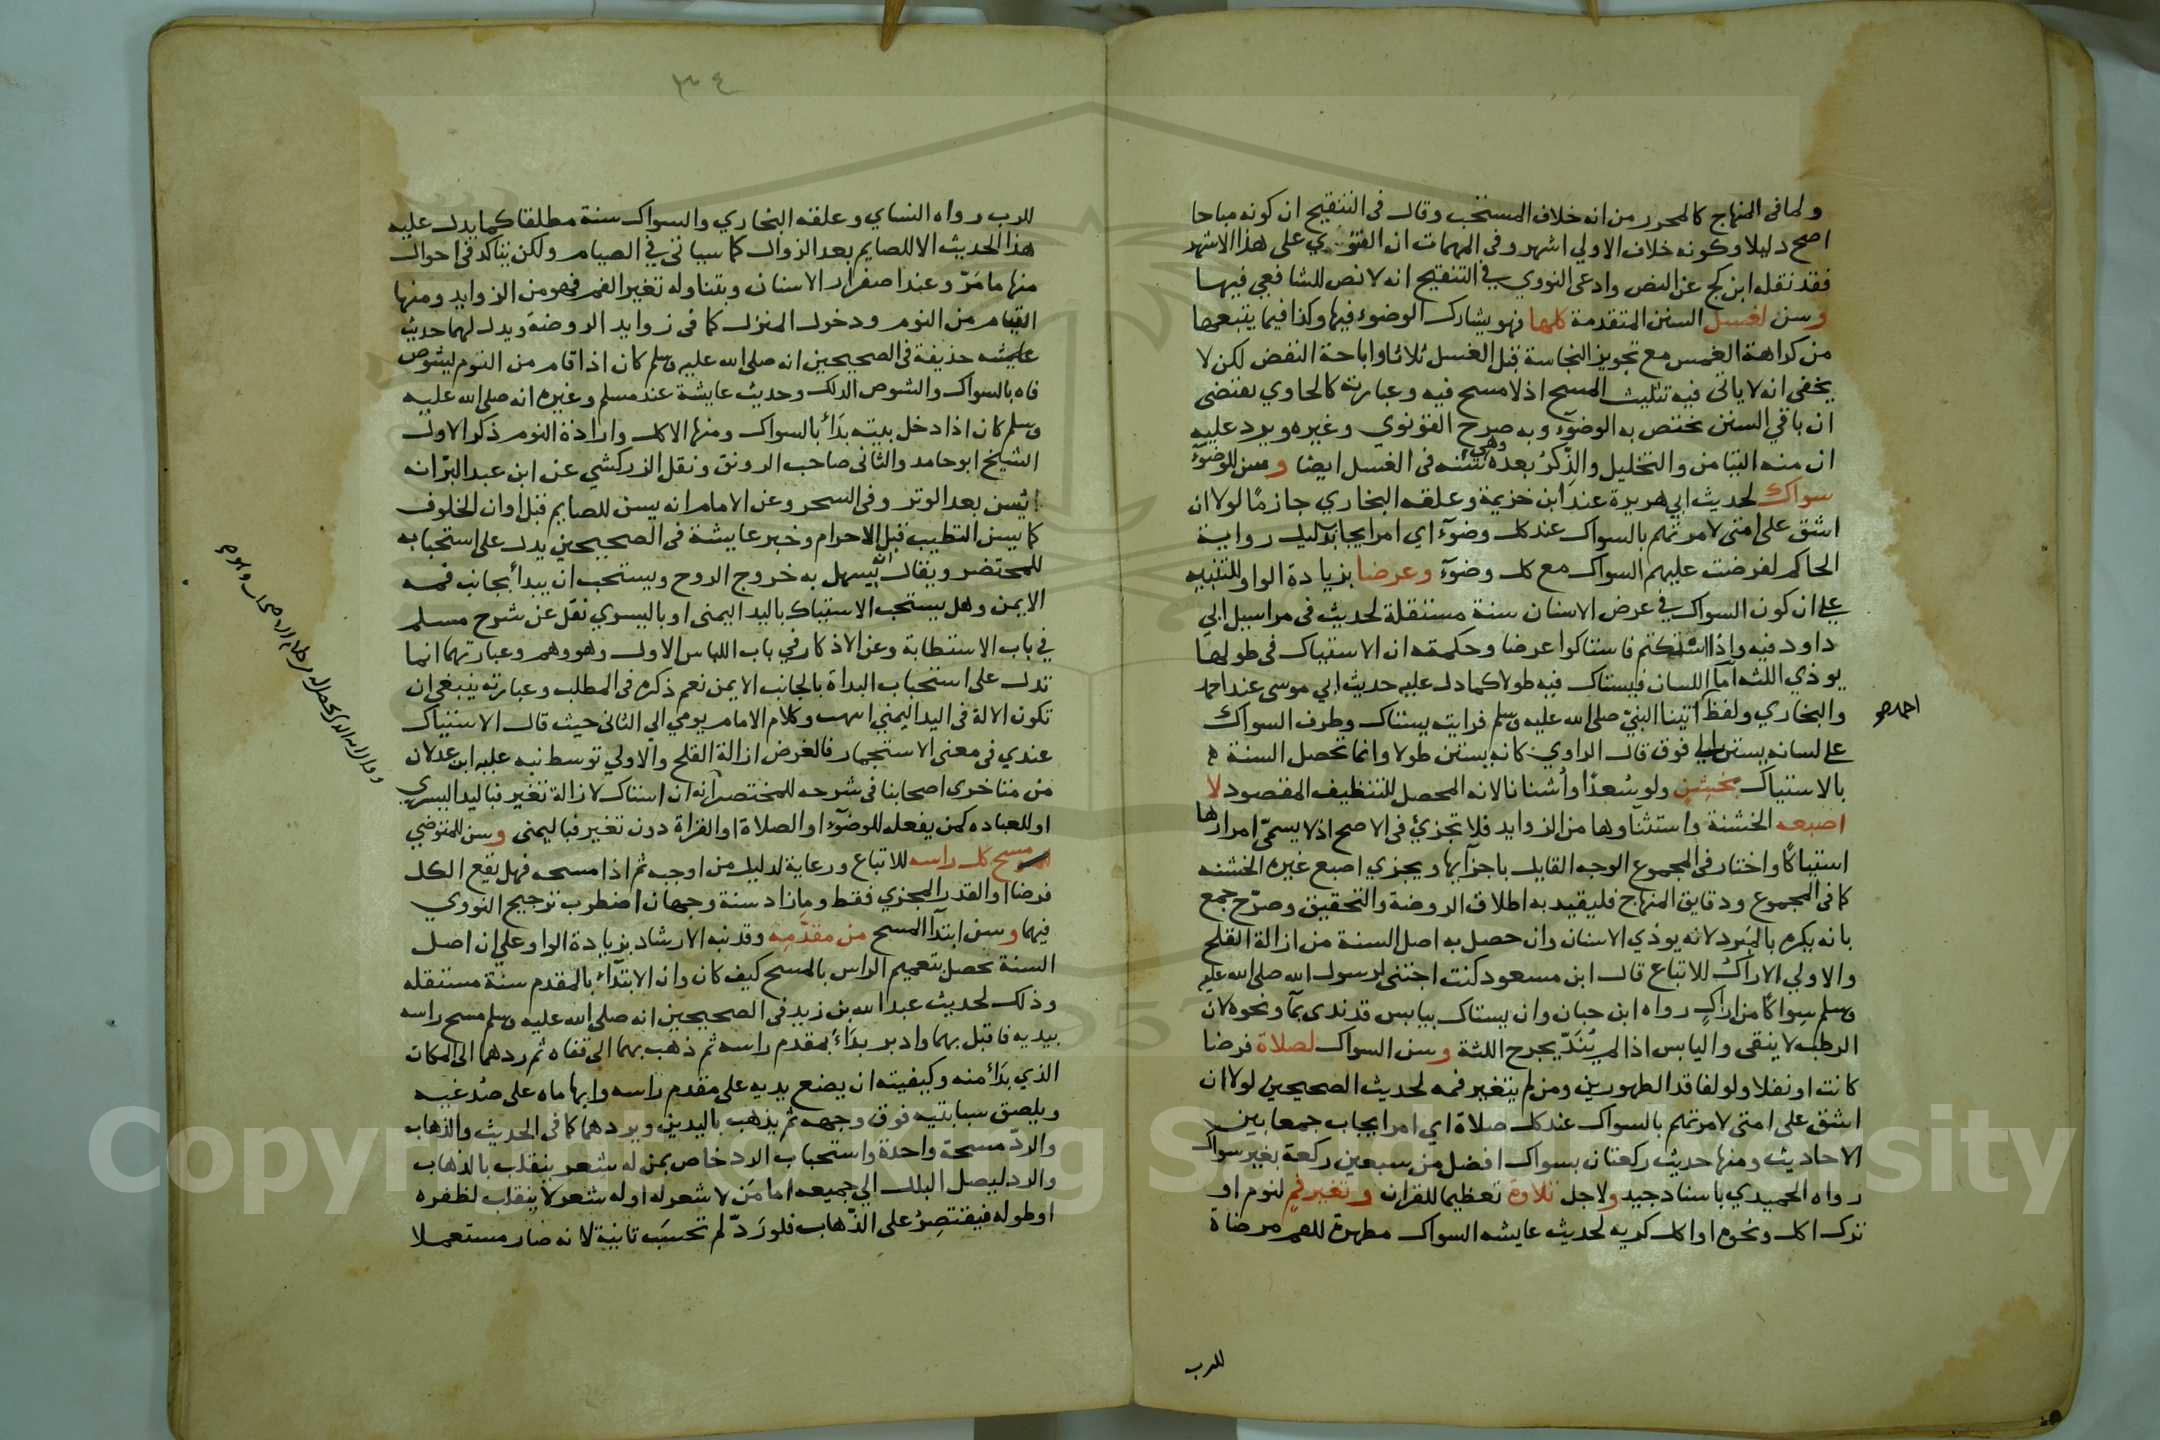 ولما في المنهاج كالمحرر من انه خلاف المستحب وقال في التنقيح ان كونه مباحا
اصح دليلا وكونه خلاف الاولي اشهر وفي المهمات ان الفتوي علي هذا الاشهر
فقد نقله ابن كج عن النص وادعي النووي في التنقيح انه لا نص للشافعي فيها
وسن لغسل السنن المتقدمة كلها فهو يشارك الوضوء فيها وكذا فيما يتبعها
من كراهة الغمس مع تجويز النجاسة قبل الغسل ثلاثا واباحة النفض لكن لا
يخفي انه لا ياتي فيه تثليث المسح اذ لا مسح فيه وعبارته كالحاوي يقتضي
ان باقي السنن تختص به الوضوٓء وبه صرح القونوي وغيره ويرد عليه
ان منه التيامن والتخليل والذكر بعده وهي سنة في الغسل ايضا وسن للوضوٓء
سواك لحديث ابي هريرة عند ابن خزيمة وعلقه البخاري جازما لولا ان
اشق علي امتي لامرتهم بالسواك عند كل وضوٓء اي امر ايجاب بدليل رواية
الحاكم لفرضت عليهم السواك مع كل وضوٓء وعرضا بزيادة الواو للتنبيه
علي ان كون السواك في عرض الاسنان سنة مستقلة لحديث في مراسيل ابي
داود فيه واذا استكتم فاستاكوا عرضا وحكمته ان الاستياك في طولها
يوذي اللثه اما اللسان فيستاك فيه طولا كما دل عليه حديث ابي موسي عند احمد
والبخاري ولفظ اتينا النبي صلي الله عليه وسلم فرايته يستاك وطرف السواك
علي لسانه يستن الي فوق قال الراوي كانه يستن طولا وانما تحصل السنة
بالاستياك بخشن ولو سعدا واشنانا لانه المحصل للتنظيف المقصود لا
اصبعه الخشنة واستثناوها من الزوايد فلا تجزئ في الاصح اذ لا يسمي امرارها
استياكا واختار في المجموع الوجه القايل باجزايها ويجزي اصبع غيره الخشنه
كما في المجموع ودقايق المنهاج فليقيد به اطلاق الروضة والتحقيق وصرح جمع
بانه يكره بالمبرد لانه يوذي الاسنان وان حصل به اصل السنة من ازالة القلح
والاولي الاراك للاتباع قال ابن مسعود كنت اجتني لرسول الله صلي الله عليه
وسلم سواكا من اراك رواه ابن حبان وان يستاك بيابس قد ندي بمآ ونحوه لان
الرطب لا ينقي واليابس اذا لم يند يجرح اللثة وسن السواك لصلاة فرضا
كانت او نفلا ولو لفاقد الطهورين ومن لم يتغير فمه لحديث الصحيحين لولا ان
اشق علي امتي لامرتهم بالسواك عند كل صلاة اي امر ايجاب جمعا بين
الاحاديث ومنها حديث ركعتان بسواك افضل من سبعين ركعة بغير سواك
رواه الحميدي باسناد جيد ولاجل تلاوة تعظيما للقران وتغير فم لنوم او
ترك اكل ونحوه او اكل كريه لحديث عايشه السواك مطهرة للفم مرضاة
للرب
احمد صح
٣٤
للرب رواه النساي وعلقه البخاري والسواك سنة مطلقا كما يدل عليه
هذا الحديث الا للصايم بعد الزوال كما سياتي في الصيام ولكن يتاكد في احوال
منها ما مرّ وعند اصفرار الاسنان ويتناوله تغير الفم فهو من الزوايد ومنها
القيام من النوم ودخول المنزل كما في زوايد الروضة ويدل لهما حديث
حذيفة في الصحيحين انه صلي الله عليه وسلم كان اذا قام من النوم ليشوص
فاه بالسواك والشوص الدلك وحديث عايشة عند مسلم وغيره انه صلي الله عليه
وسلم كان اذا دخل بيته بدأ بالسواك ومنها الاكل وارادة النوم ذكر الاول
الشيخ ابو حامد والثاني صاحب الرونق ونقل الزركشي عن ابن عبد البر انه
يسن بعد الوتر وفي السحر وعن الامام انه يسن للصايم قبل اوان الخلوف
كما يسن التطيب قبل الاحرام وخبر عايشة في الصحيحين يدل علي استحبابه
للمحتضر ويقال انه يسهل به خروج الروح ويستحب ان يبدأ بجانب فمه
الايمن وهل يستحب الاستياك باليد اليمني او باليسري نقل عن شرح مسلم
في باب الاستطابة وعن الاذكار في باب اللباس الاول وهو وهم وعبارتهما انما
تدل علي استحباب البداة بالجانب الايمن نعم ذكره في المطلب وعبارته ينبغي ان
تكون الالة في اليد اليمني وكلام الامام يومي الي الثاني حيث قال الاستياك
عندي في معني الاستجمار فالغرض ازالة القلح والاولي توسط نبه عليه ابن عدلان
من متاخري اصحابنا في شرحه للمختصر انه ان استاك لازالة تغير فباليد اليسري
او للعباده كمن يفعله للوضوٓء او الصلاة او القراة دون تغير فباليمني وسن للمتوضي
مسح كل راسه للاتباع ورعاية لدليل من اوجبه ثم اذا مسحه فهل يقع الكل
فرضا او القدر المجزي فقط وما زاد سنة وجهان اضطرب ترجيح النووي
فيهما وسن ابتدآ المسح من مقدمه وقد نبه الارشاد بزيادة الواو علي ان اصل
السنة تحصل بتعميم الراس بالمسح كيف كان وان الابتدآء بالمقدم سنة مستقله
وذلك لحديث عبد الله بن زيد في الصحيحين انه صلي الله عليه وسلم مسح راسه
بيديه فاقبل بهما وادبر بدأ بمقدم راسه ثم ذهب بهما الي قفاه ثم ردهما الي المكان
الذي بدأ منه وكيفيته ان يضع يديه علي مقدم راسه وابهاماه علي صدغيه
ويلصق سبابتيه فوق وجهه ثم يذهب باليدين ويردهما كما في الحديث والذهاب
والردّ مسحة واحدة واستحباب الرد خاص بمن له شعر ينقلب بالذهاب
والرد ليصل البلل الي جميعه اما من لا شعر له او له شعر لا ينقلب لظفره
او طوله فيقتصر علي الذهاب فلو ردّ لم تحسب ثانية لانه صار مستعملا
Copyright © King Saud University